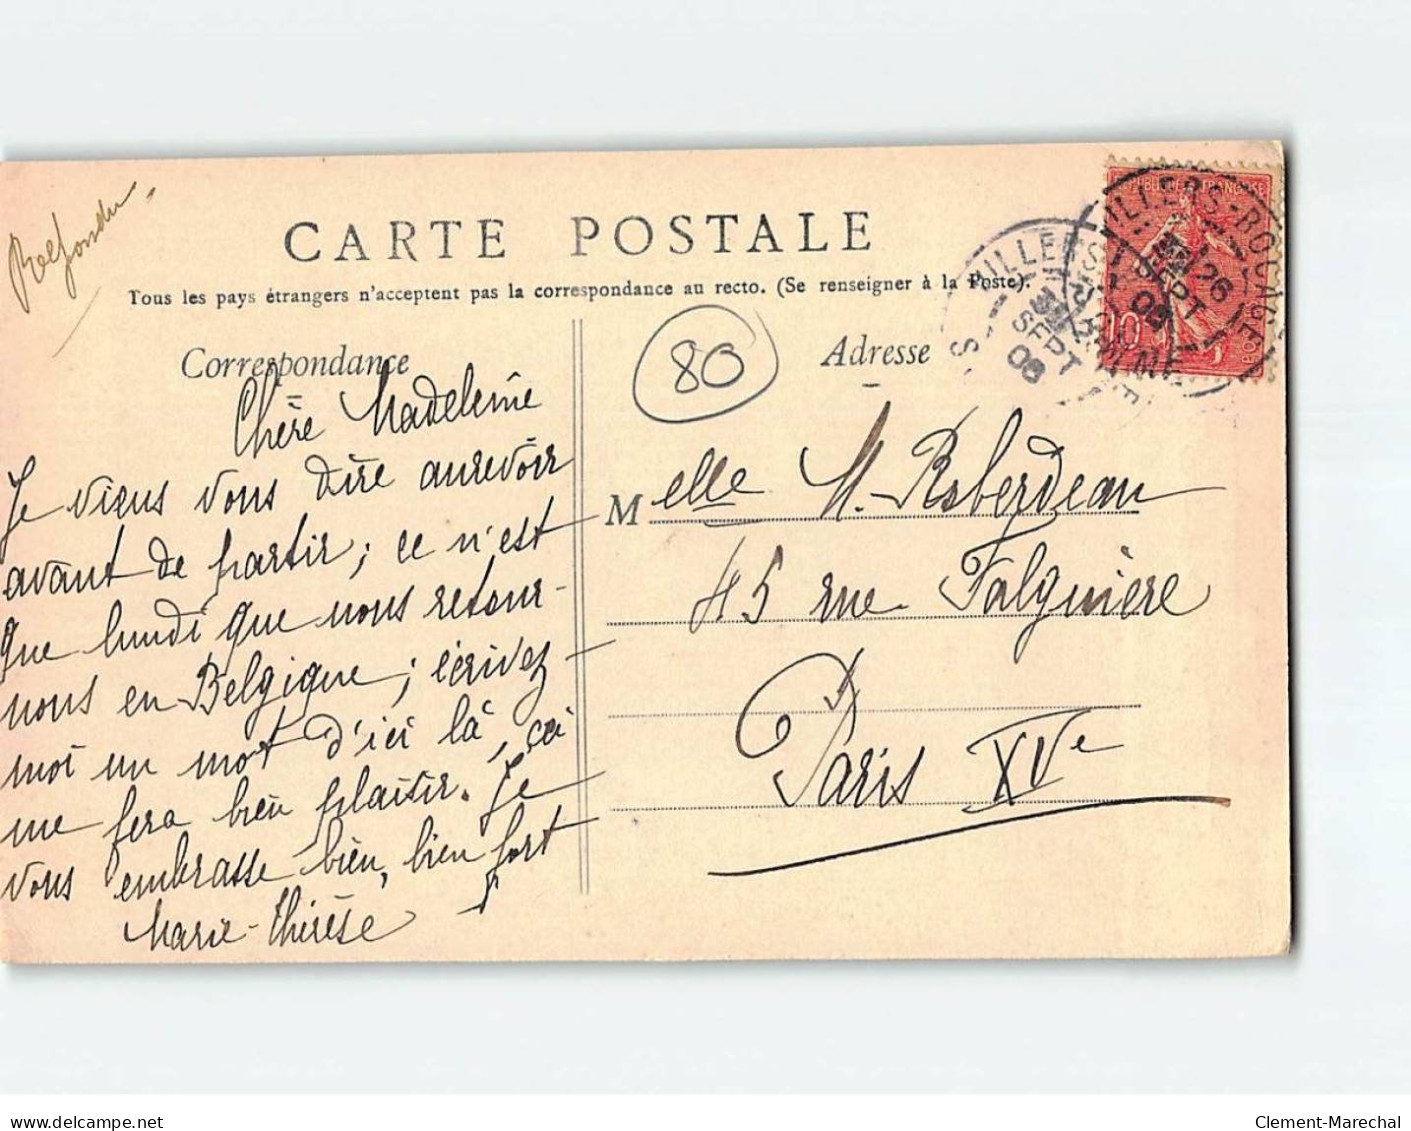 CARTE POSTALE
Tous les pays étrangers n'acceptent pas la correspondance au recto. (Se renseigner à la Poste).
Correspondance
Chère Madeleine
Je viens vous dire aurevoir
avant de partir; ce n'est
que lundi que nous retour-
nons en Belgique; écrivez-
moi un mot d'ici là, ça
me fera bien plaisir. Je
vous embrasse bien, bien fort
Marie-Thérèse
80
Adresse
Melle M. Roberdeau
45 rue Falguière
Paris XVe
RÉPUBLIQUE FRANÇAISE
10
POSTES
VILLERS-BOCAGE
26
SEPT
SOMME
delcampe.net
Clement-Marechal